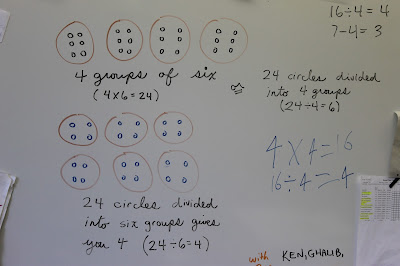 16÷4=4
7-4=3
4 groups of six
(4x6=24)
24 circles divided
into 4 groups
(24÷4=6)
4X4=16
16÷4=4
24 circles divided
into six groups gives
you 4 (24÷6=4)
with KEN, GHALIB,